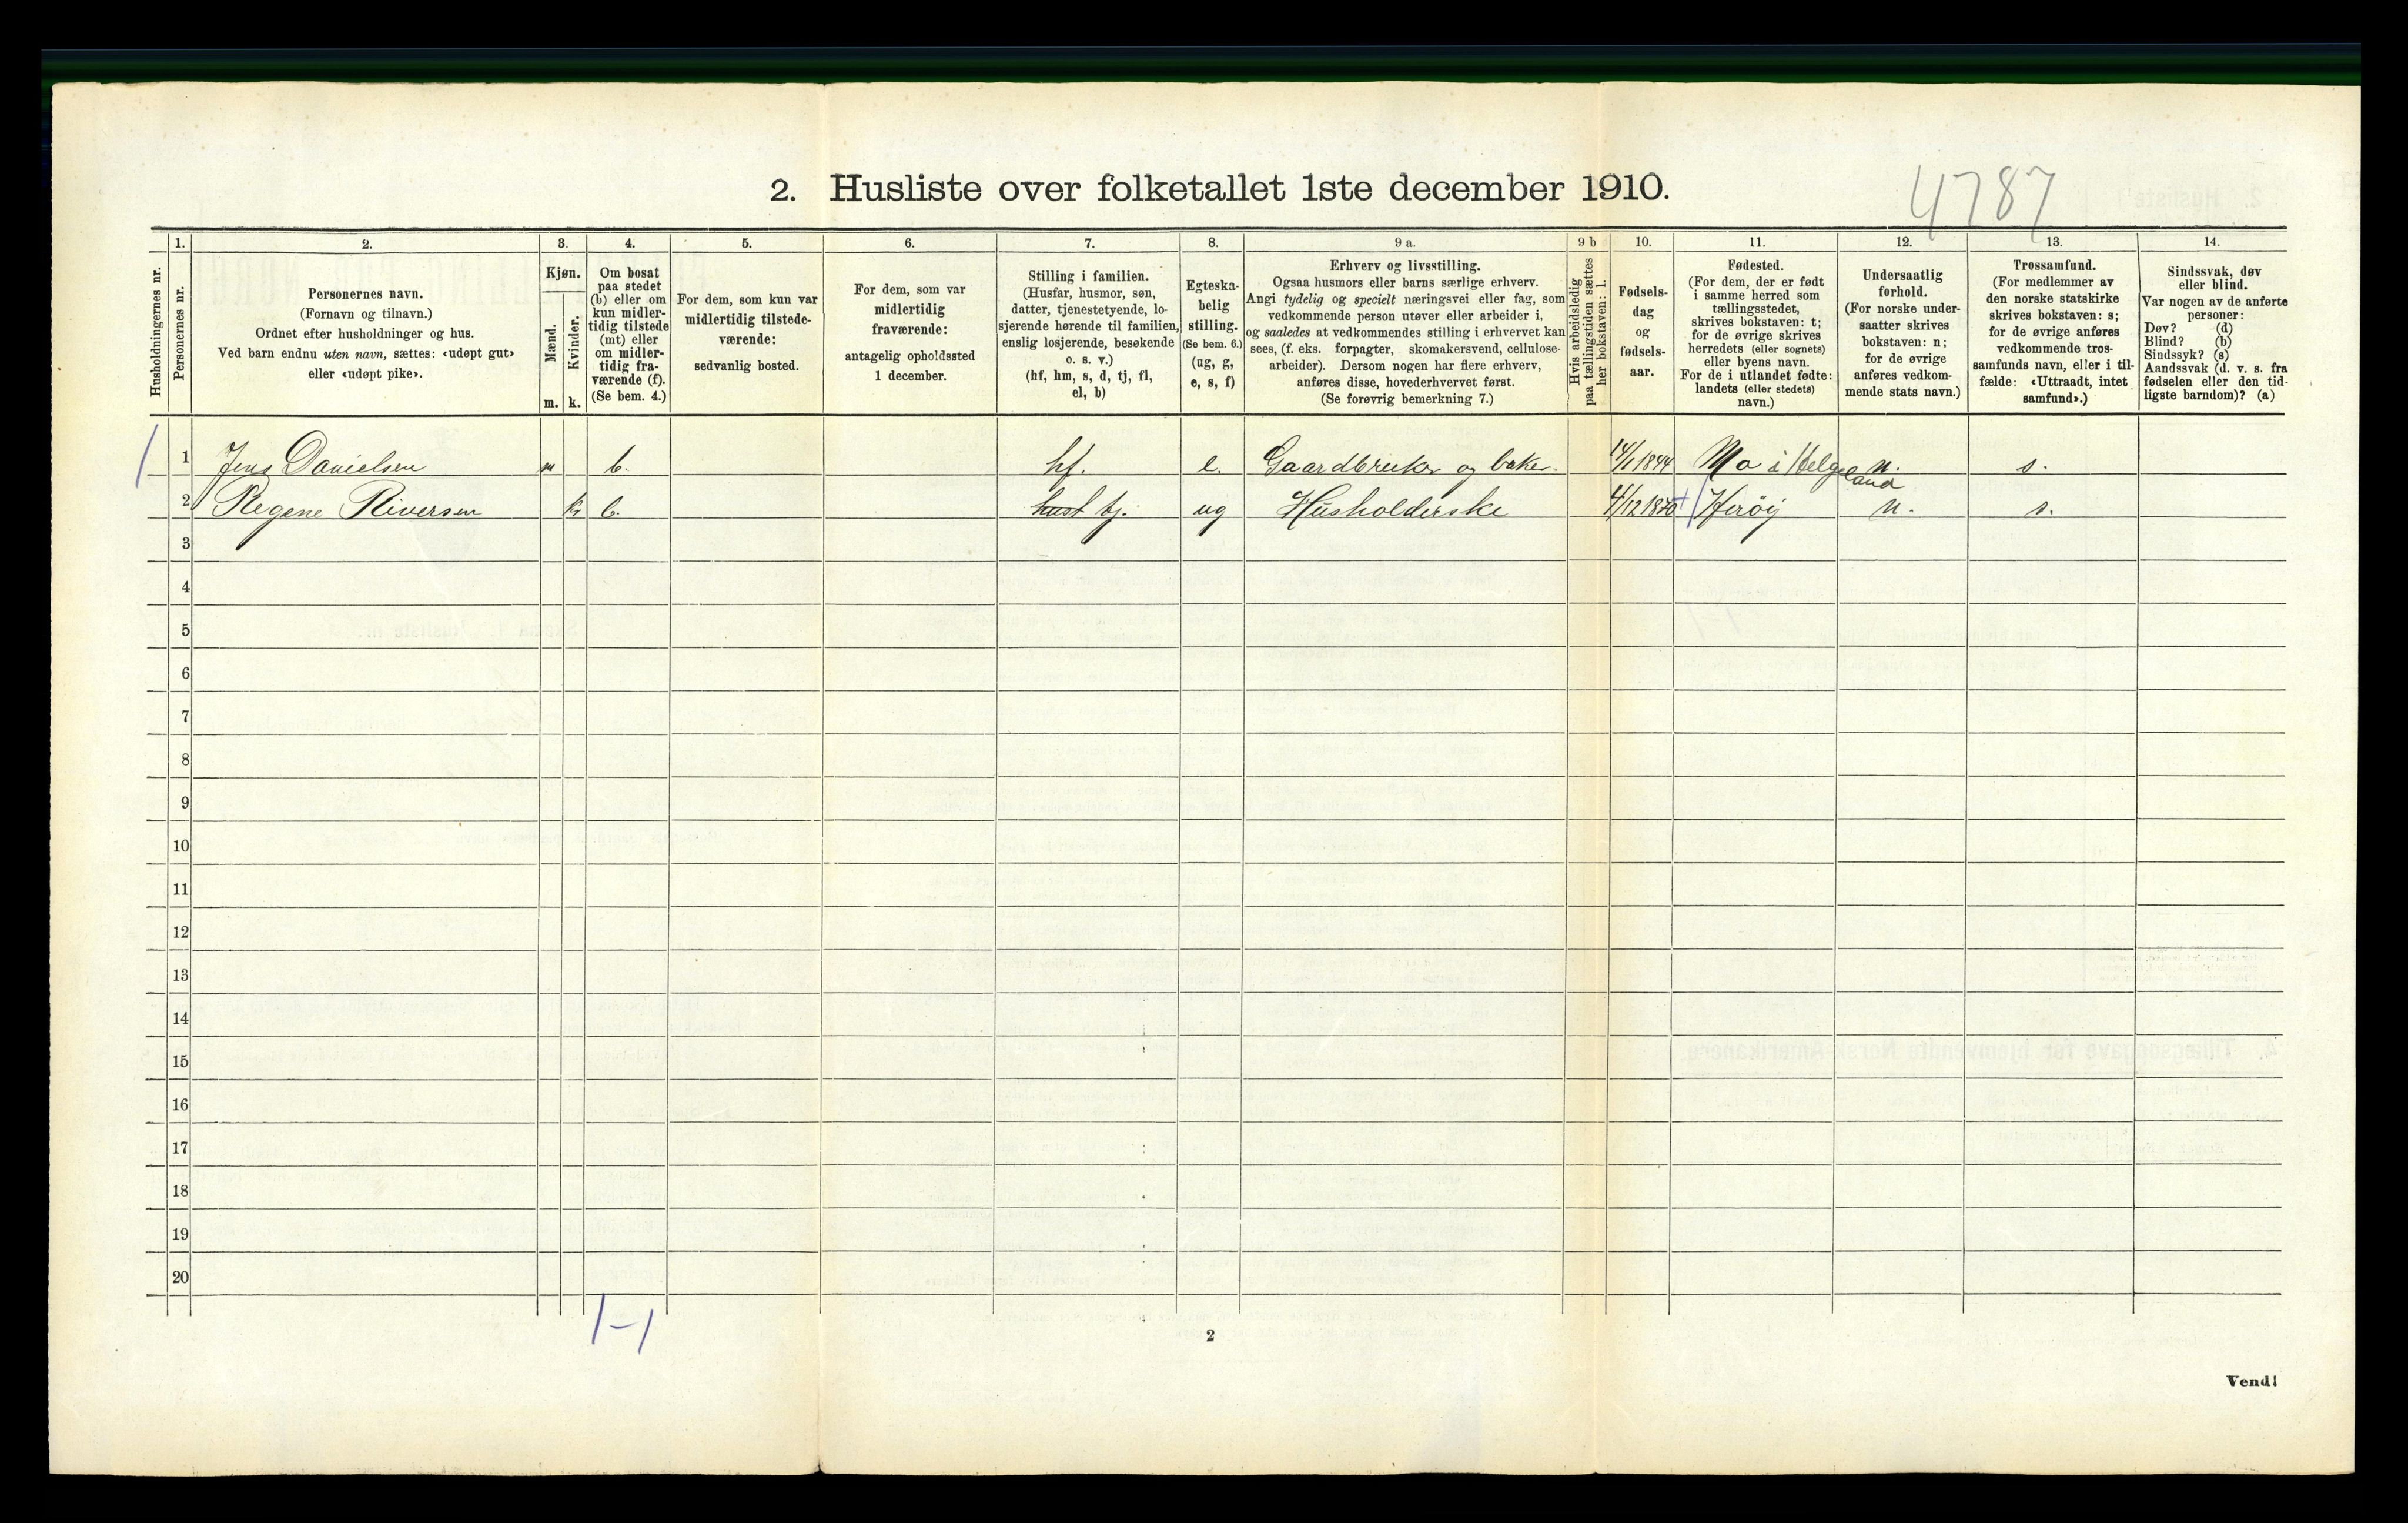 4787
2. Husliste over folketallet 1ste december 1910.
Husholdningernes nr.
1.
Personernes nr.
2.
Personernes navn.
(Fornavn og tilnavn.)
Ordnet efter husholdninger og hus.
Ved barn endnu uten navn, sættes: «udøpt gut»
eller «udøpt pike».
3.
Kjøn.
Mænd.
Kvinder.
m. k.
4.
Om bosat
paa stedet
(b) eller om
kun midler-
tidig tilstede
(mt) eller
om midler-
tidig fra-
værende (f).
(Se bem. 4.)
5.
For dem, som kun var
midlertidig tilstede-
værende:
sedvanlig bosted.
6.
For dem, som var
midlertidig
fraværende:
antagelig opholdssted
1 december.
7.
Stilling i familien.
(Husfar, husmor, søn,
datter, tjenestetyende, lo-
sjerende hørende til familien,
enslig losjerende, besøkende
o. s. v.)
(hf, hm, s, d, tj, fl,
el, b)
8.
Egteska-
belig
stilling.
(Se bem. 6.)
(ug, g,
e, s, f)
9 a.
Erhverv og livsstilling.
Ogsaa husmors eller barns særlige erhverv.
Angi tydelig og specielt næringsvei eller fag, som
vedkommende person utøver eller arbeider i,
og saaledes at vedkommendes stilling i erhvervet kan
sees, (f. eks. forpagter, skomakersvend, cellulose-
arbeider). Dersom nogen har flere erhverv,
anføres disse, hovederhvervet først.
(Se forøvrig bemerkning 7.)
9 b
Hvis arbeidsledig
paa tællingstiden sættes
her bokstaven: l.
10.
Fødsels-
dag
og
fødsels-
aar.
11.
Fødested.
(For dem, der er født
i samme herred som
tællingsstedet,
skrives bokstaven: t;
for de øvrige skrives
herredets (eller sognets)
eller byens navn.
For de i utlandet fødte:
landets (eller stedets)
navn.)
12.
Undersaatlig
forhold.
(For norske under-
saatter skrives
bokstaven: n;
for de øvrige
anføres vedkom-
mende stats navn.)
13.
Trossamfund.
(For medlemmer av
den norske statskirke
skrives bokstaven: s;
for de øvrige anføres
vedkommende tros-
samfunds navn, eller i til-
fælde: «Uttraadt, intet
samfund».)
14.
Sindssvak, døv
eller blind.
Var nogen av de anførte
personer:
Døv? (d)
Blind? (b)
Sindssyk? (s)
Aandssvak (d. v. s. fra
fødselen eller den tid-
ligste barndom)? (a)
1 Jens Danielsen m b. hf. e. Gaardbruker og baker 14/1 1844 Mo i Helgeland n. s.
2 Regene Riversen k b. hust tj. ug Husholderske 4/12 1870 Herøy n. s.
3
4
5
6
7
8
9
10
11
12
13
14
15
16
17
18
19
20
1-1
2
Vend!